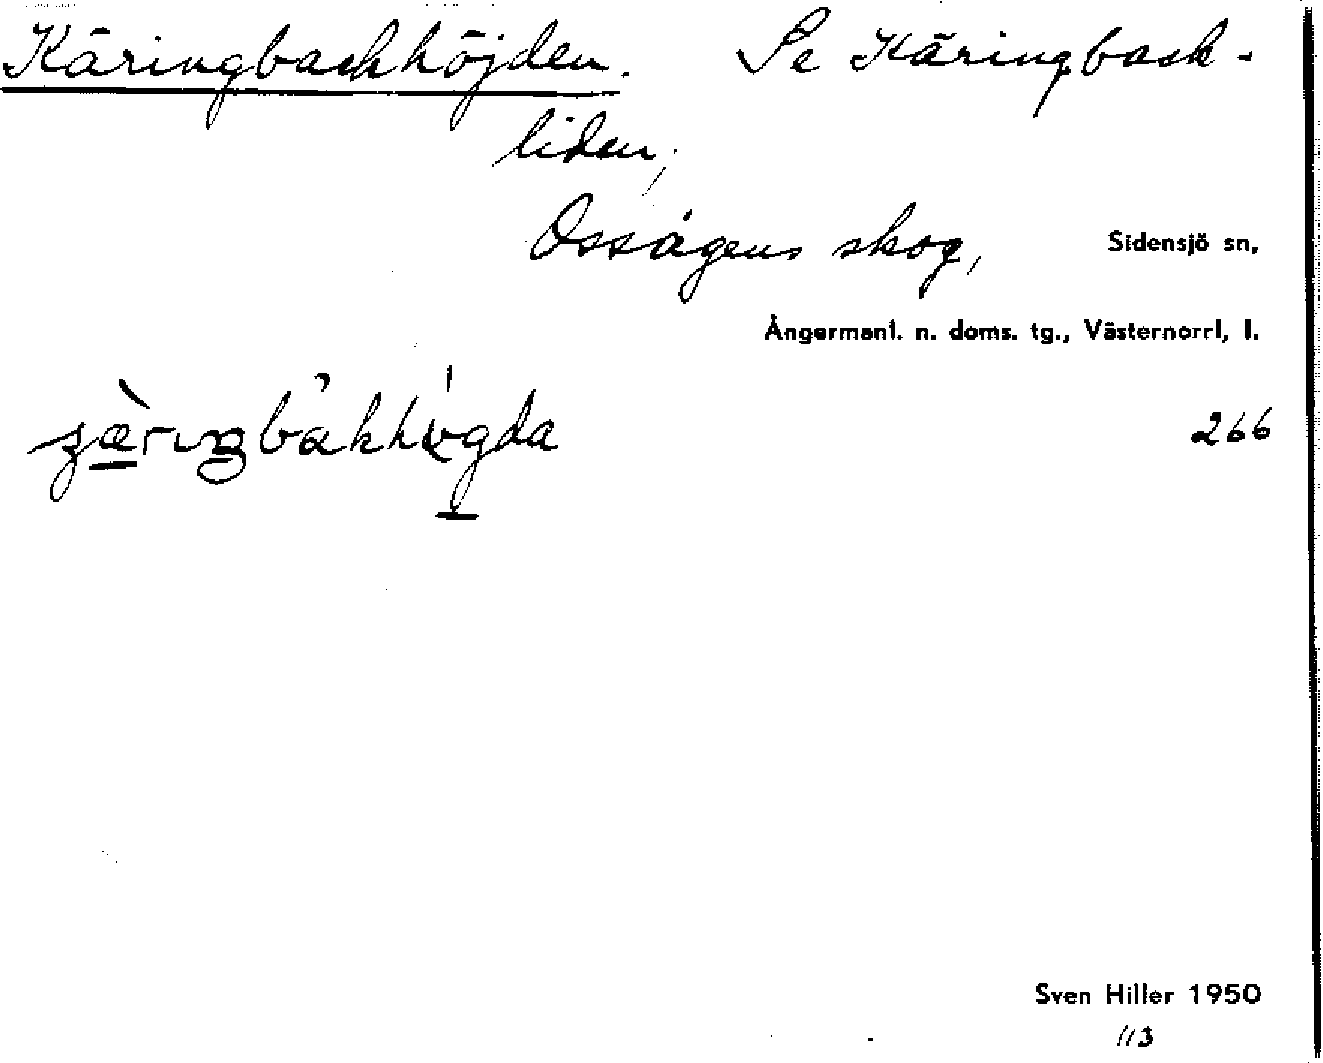 Käringbackhöjden. Se Käringback-
liden,
Ossågens skog, Sidensjö sn,
Ångermanl. n. doms. tg., Västernorrl, l.
266
Sven Hiller 1950
113